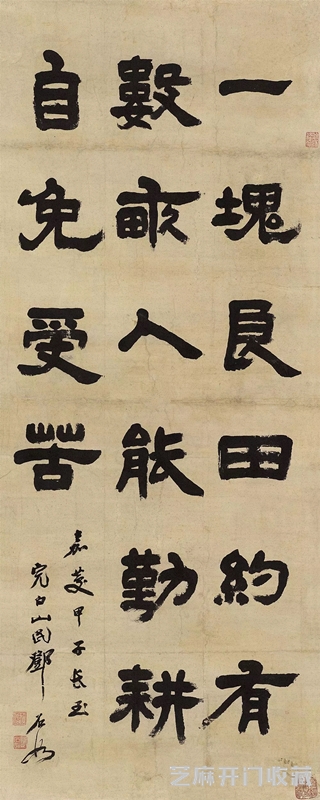 一塊良田約有
數畝人能勤耕
自免受苦
嘉慶甲子長至
完白山民鄧石如
芝麻开门收藏